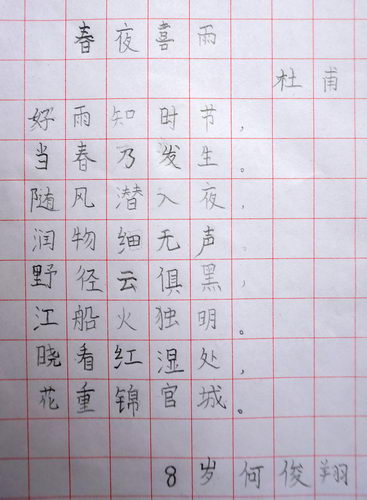 春夜喜雨
杜甫
好雨知时节，
当春乃发生。
随风潜入夜，
润物细无声。
野径云俱黑，
江船火独明。
晓看红湿处，
花重锦官城。
8岁何俊翔